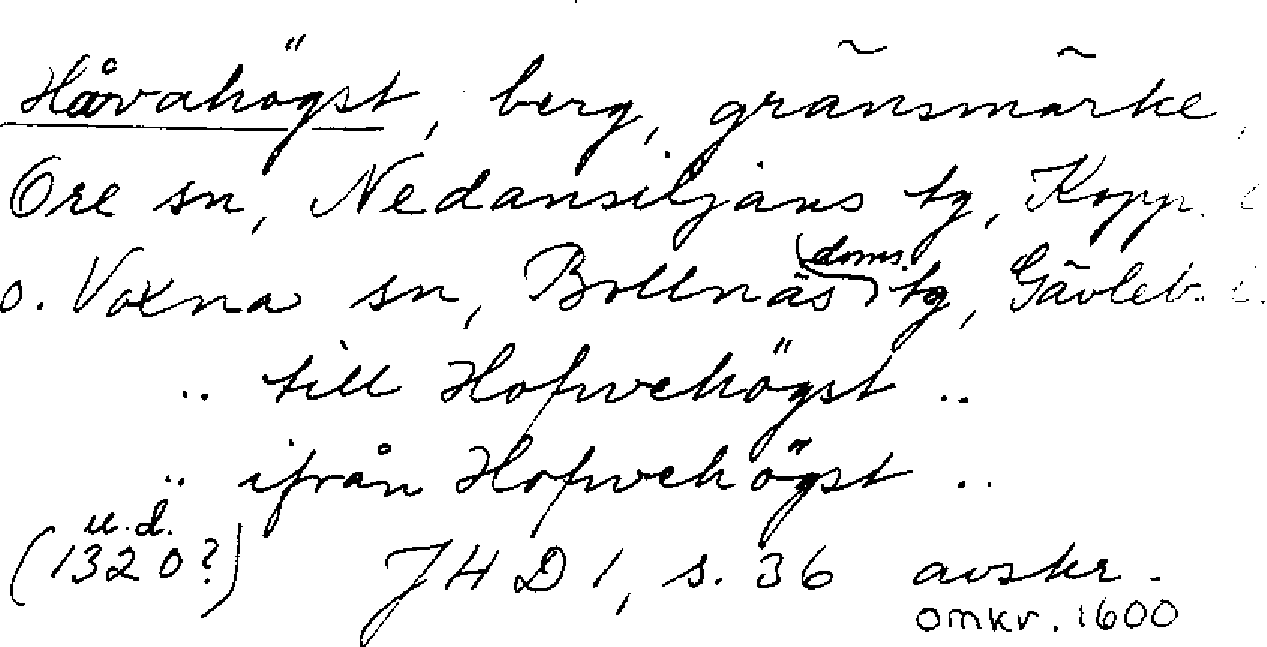 Håvahögst, berg, gränsmärke,
Ore sn, Nedansiljans tg, Kopp. l
o. Voxna sn, Bollnäs doms. tg, Gävleb. l.
.. till Hofwehögst ..
.. ifrån Hofwehögst ..
u.d.
(1320?) JHD 1, s. 36 avskr.
omkr. 1600